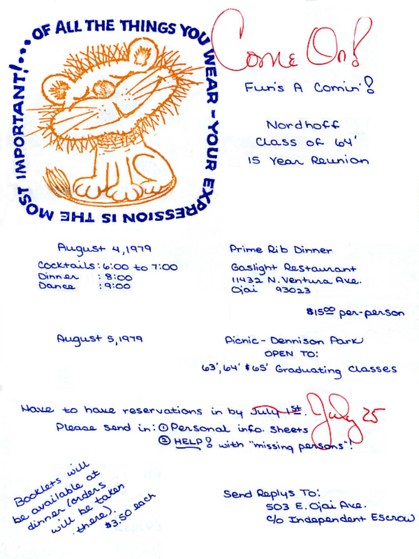 OF ALL THE THINGS YOU WEAR - YOUR EXPRESSION IS THE MOST IMPORTANT!...
Come On!
Fun's A Comin'!
Nordhoff
Class of 64'
15 Year Reunion
August 4, 1979
Cocktails: 6:00 to 7:00
Dinner : 8:00
Dance : 9:00
Prime Rib Dinner
Gaslight Restaurant
11432 N. Ventura Ave.
Ojai 93023
$15.00 per-person
August 5, 1979
Picnic- Dennison Park
OPEN TO:
63', 64' $ 65' Graduating Classes
Have to have reservations in by July 1st. July 25
Please send in: ① Personal info. Sheets
② HELP! with "missing persons".
Booklets will
be available at
dinner (orders
will be taken
there).
$3.50 each
Send Replys To:
503 E. Ojai Ave.
C/o Independent Escrow